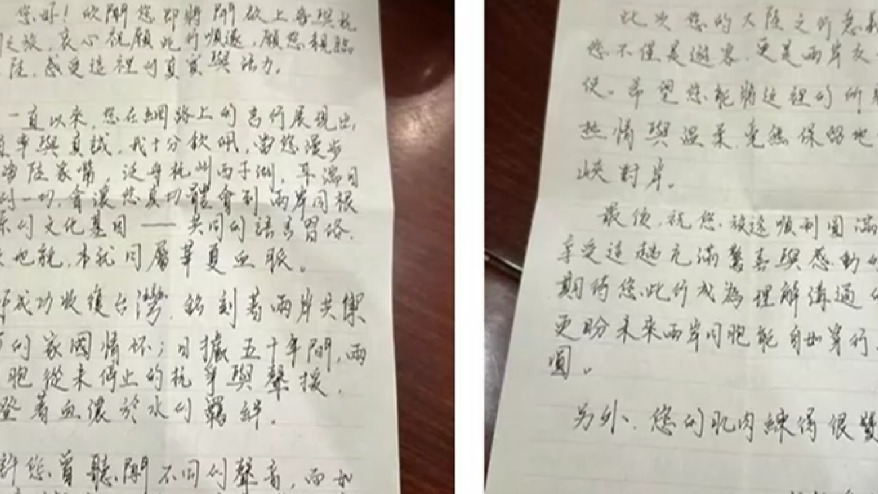 您好！欣聞您即將開啟上海與杭
之旅，衷心祝願此行順遂，願您親臨
陸，感受這裡的真實與活力。
一直以來，您在網路上的言行展現出
率與真誠，我十分欽佩，當您漫步
陸家嘴，泛舟杭州西子湖，耳濡目
的一切，會讓您真切體會到兩岸同根
的文化基因——共同的語言習俗、
也能，本就同屬華夏血脈
成功收復台灣，銘刻著兩岸共禦
的家國情懷；日據五十年間，兩
胞從未停止的抗爭與聲援，
著血濃於水的羈絆。
許您曾聽聞不同的聲音，而如
此次您的大陸之行意義
您不僅是遊客，更是兩岸友
使。希望您能將這裡的所
熱情與溫柔，完然保留地
峽對岸。
最後，祝您旅途順利圓滿
享受這趟充滿驚喜與感動的
期待您此行成為理解溝通的
更盼未來兩岸同胞能自如穿行、
圓。
另外，您的肌肉練得很贊